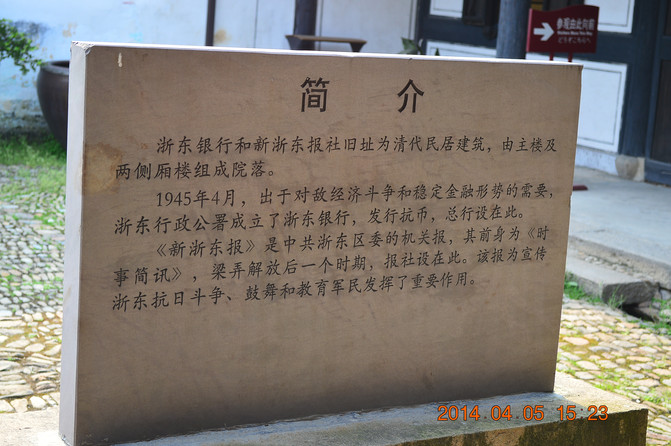 参观由此向前
简介
浙东银行和新浙东报社旧址为清代民居建筑，由主楼及
两侧厢楼组成院落。
1945年4月，出于对敌经济斗争和稳定金融形势的需要，
浙东行政公署成立了浙东银行，发行抗币，总行设在此。
《新浙东报》是中共浙东区委的机关报，其前身为《时
事简讯》，梁弄解放后一个时期，报社设在此。该报为宣传
浙东抗日斗争、鼓舞和教育军民发挥了重要作用。
2014.04.05 15:23